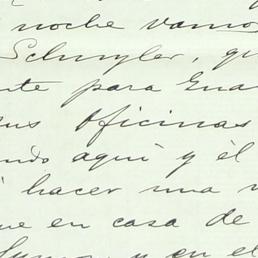 noche vamos
Schuyler, qu
nte para Gua
sus oficinas
ndo aquí y él
hacer una v
ue en casa de
y en el